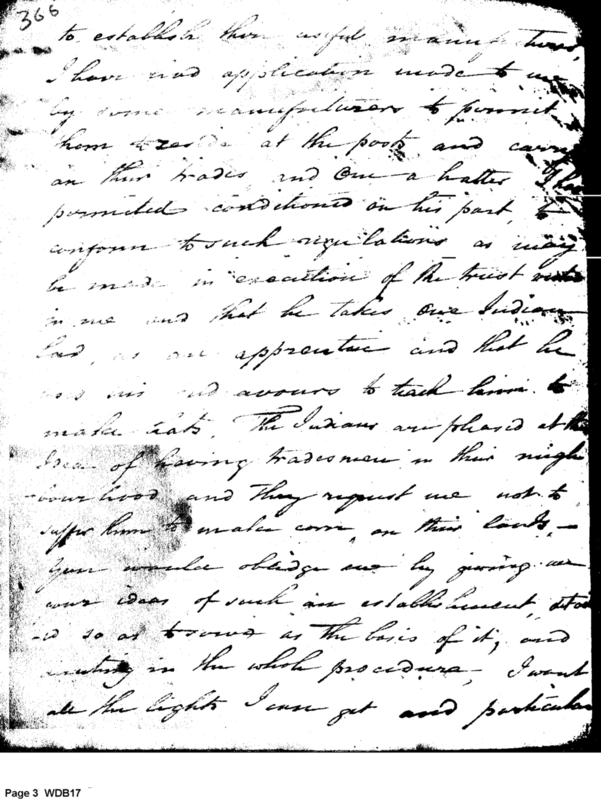 366
to establish their useful manufactures,
I have had application made to me
by some manufacturers to permit
them to reside at the posts and carry
on their trades and One a hatter I have
permited conditioned on his part, to
conform to such regulations as may
be made in execution of the trust vested
in me and that he takes One Indian
lad, as an apprentice and that he
uses his endavours to teach him to
make hats. The Indians are pleased at the
Idea of having tradesmen in their neigh
bourhood and they request me not to
suffer them to make corn, on their lands, -
You would obledge me by giving me
your ideas of such an establishment,
so as to serve as the basis of it, and
in the whole procedure, I want
all the lights I can get and particular
Page 3 WDB17